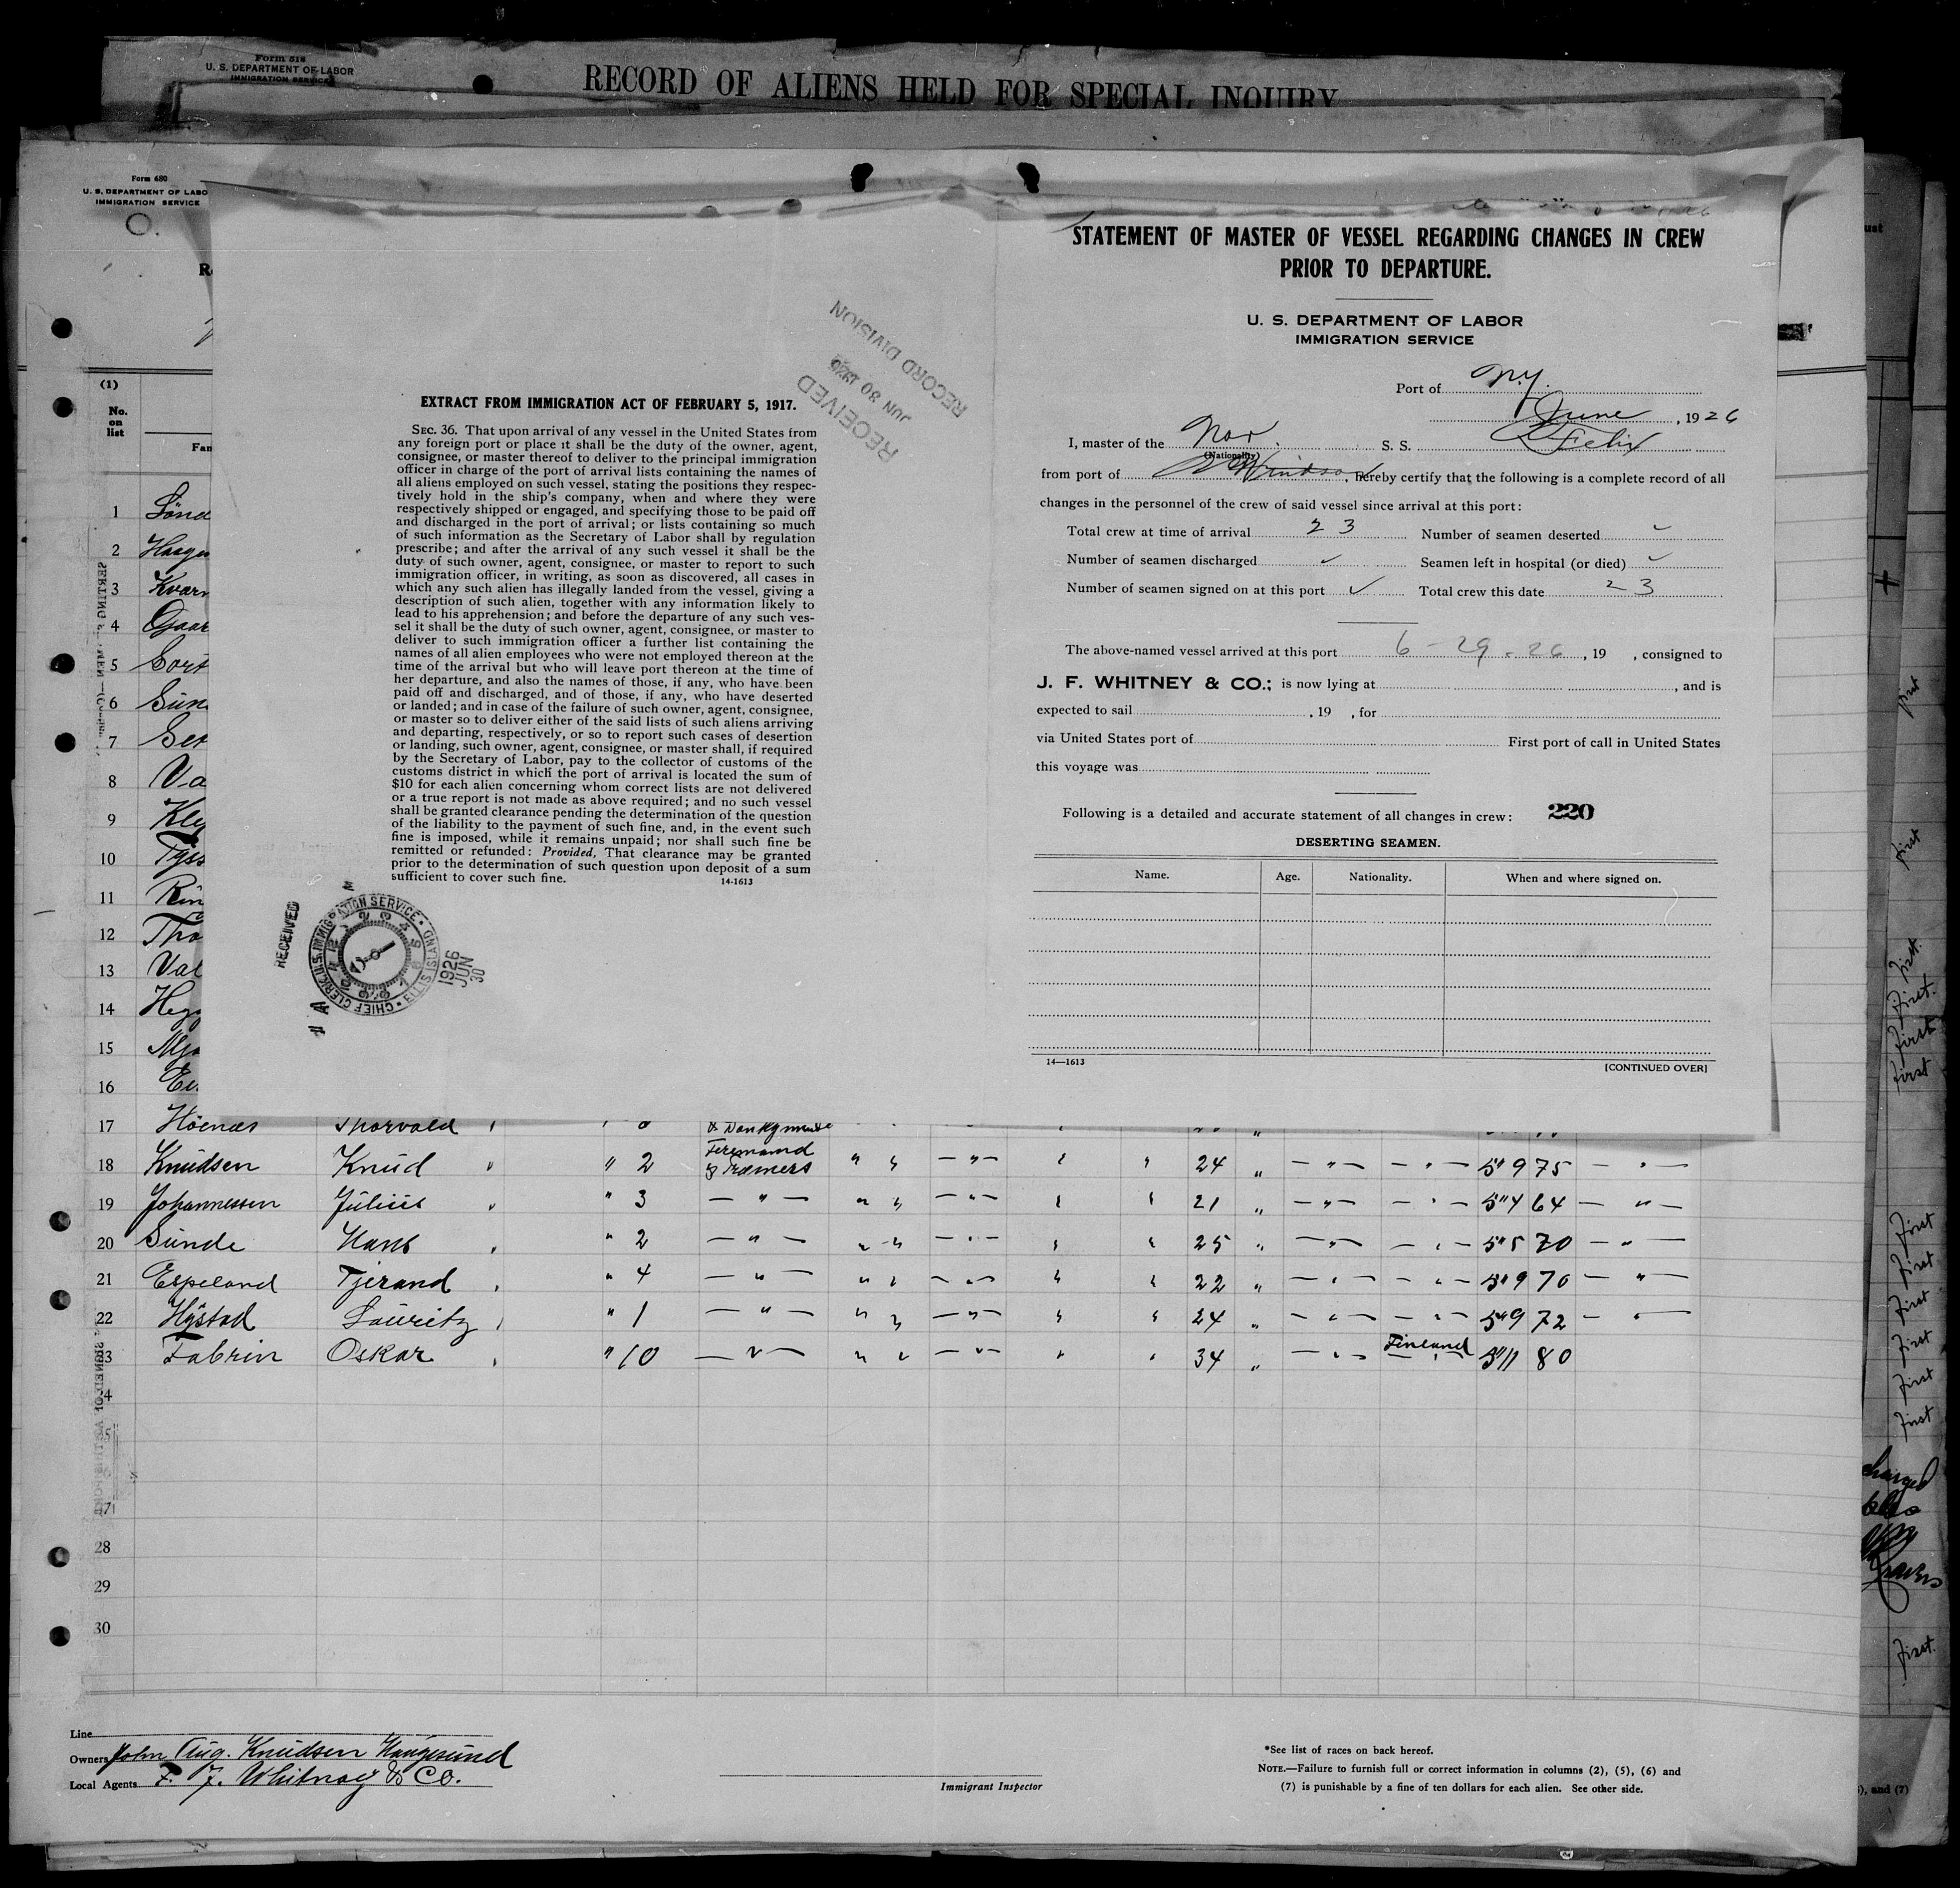 Form 518
U. S. DEPARTMENT OF LABOR
IMMIGRATION SERVICE
RECORD OF ALIENS HELD FOR SPECIAL INQUIRY
Form 680
U. S. DEPARTMENT OF LABO
IMMIGRATION SERVICE
(1)
No.
on
list
Fam
1 Sönd
2 Haagen
3 Kvarn
4 Gaar
5 Sort
6 Sün
7 Set
8 Va
9 Kley
10 Tyss
11 Rin
12 Tho
13 Val
14 Heg
15 Mja
16
17 Höenæs Thorvald
& Donkymand
18 Knüdsen Knüd " 2 24 5" 9 75
19 Johannessen Jülius " 3 — " — 21 5" 4 64
20 Sünde Hans " 2 — " — 25 5" 5 70
21 Espeland Tjerand " 4 — " — 22 5" 9 70
22 Hystad Lauritz " 1 — " — 24 5" 9 72
23 Fabrin Oskar " 10 — " — 34 Finland 5" 11 80
24
28
29
30
Line
Owners John Aug. Knüdsen Haugesund
Local Agents F. J. Whitney & Co.
Immigrant Inspector
*See list of races on back hereof.
NOTE.—Failure to furnish full or correct information in columns (2), (5), (6) and
(7) is punishable by a fine of ten dollars for each alien. See other side.
EXTRACT FROM IMMIGRATION ACT OF FEBRUARY 5, 1917.
SEC. 36. That upon arrival of any vessel in the United States from
any foreign port or place it shall be the duty of the owner, agent,
consignee, or master thereof to deliver to the principal immigration
officer in charge of the port of arrival lists containing the names of
all aliens employed on such vessel, stating the positions they respec-
tively hold in the ship's company, when and where they were
respectively shipped or engaged, and specifying those to be paid off
and discharged in the port of arrival; or lists containing so much
of such information as the Secretary of Labor shall by regulation
prescribe; and after the arrival of any such vessel it shall be the
duty of such owner, agent, consignee, or master to report to such
immigration officer, in writing, as soon as discovered, all cases in
which any such alien has illegally landed from the vessel, giving a
description of such alien, together with any information likely to
lead to his apprehension; and before the departure of any such ves-
sel it shall be the duty of such owner, agent, consignee, or master to
deliver to such immigration officer a further list containing the
names of all alien employees who were not employed thereon at the
time of the arrival but who will leave port thereon at the time of
her departure, and also the names of those, if any, who have been
paid off and discharged, and of those, if any, who have deserted
or landed; and in case of the failure of such owner, agent, consignee,
or master so to deliver either of the said lists of such aliens arriving
and departing, respectively, or so to report such cases of desertion
or landing, such owner, agent, consignee, or master shall, if required
by the Secretary of Labor, pay to the collector of customs of the
customs district in which the port of arrival is located the sum of
$10 for each alien concerning whom correct lists are not delivered
or a true report is not made as above required; and no such vessel
shall be granted clearance pending the determination of the question
of the liability to the payment of such fine, and, in the event such
fine is imposed, while it remains unpaid; nor shall such fine be
remitted or refunded: Provided, That clearance may be granted
prior to the determination of such question upon deposit of a sum
sufficient to cover such fine.
14-1613
RECEIVED
JUN 30 1926
RECORD DIVISION
RECEIVED
CHIEF CLERK U.S. IMMIGRATION SERVICE • ELLIS ISLAND •
1926
JUN
30
STATEMENT OF MASTER OF VESSEL REGARDING CHANGES IN CREW
PRIOR TO DEPARTURE.
U. S. DEPARTMENT OF LABOR
IMMIGRATION SERVICE
Port of N.Y.
June, 1926
I, master of the Nor. S. S.
(Nationality)
from port of Windsor, hereby certify that the following is a complete record of all
changes in the personnel of the crew of said vessel since arrival at this port:
Total crew at time of arrival 23 Number of seamen deserted ✓
Number of seamen discharged ✓ Seamen left in hospital (or died) ✓
Number of seamen signed on at this port ✓ Total crew this date 23
The above-named vessel arrived at this port 6-29-26, 19 , consigned to
J. F. WHITNEY & CO.; is now lying at , and is
expected to sail , 19 , for
via United States port of First port of call in United States
this voyage was
Following is a detailed and accurate statement of all changes in crew: 220
DESERTING SEAMEN.
Name. Age. Nationality. When and where signed on.
14—1613
[CONTINUED OVER]
first
first
first
first
first
first
first
first
first
first
first
first
first
), and (7)